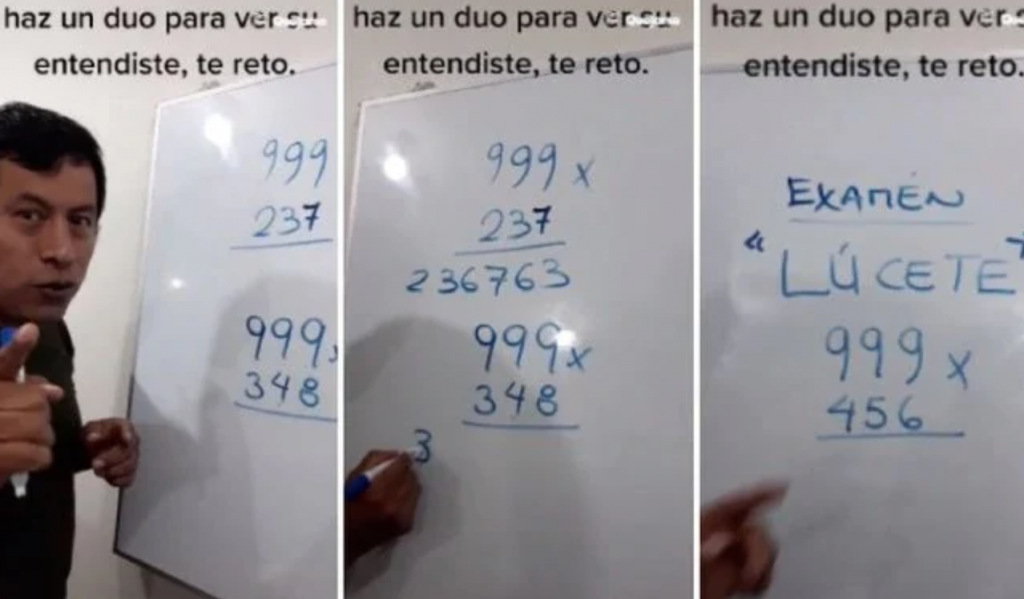 haz un duo para ver su
entendiste, te reto.
999
237
999
348
haz un duo para ver su
entendiste, te reto.
999 x
237
236763
999 x
348
3
haz un duo para ver
entendiste, te reto.
EXAMÉN
"LÚCETÉ"
999 x
456